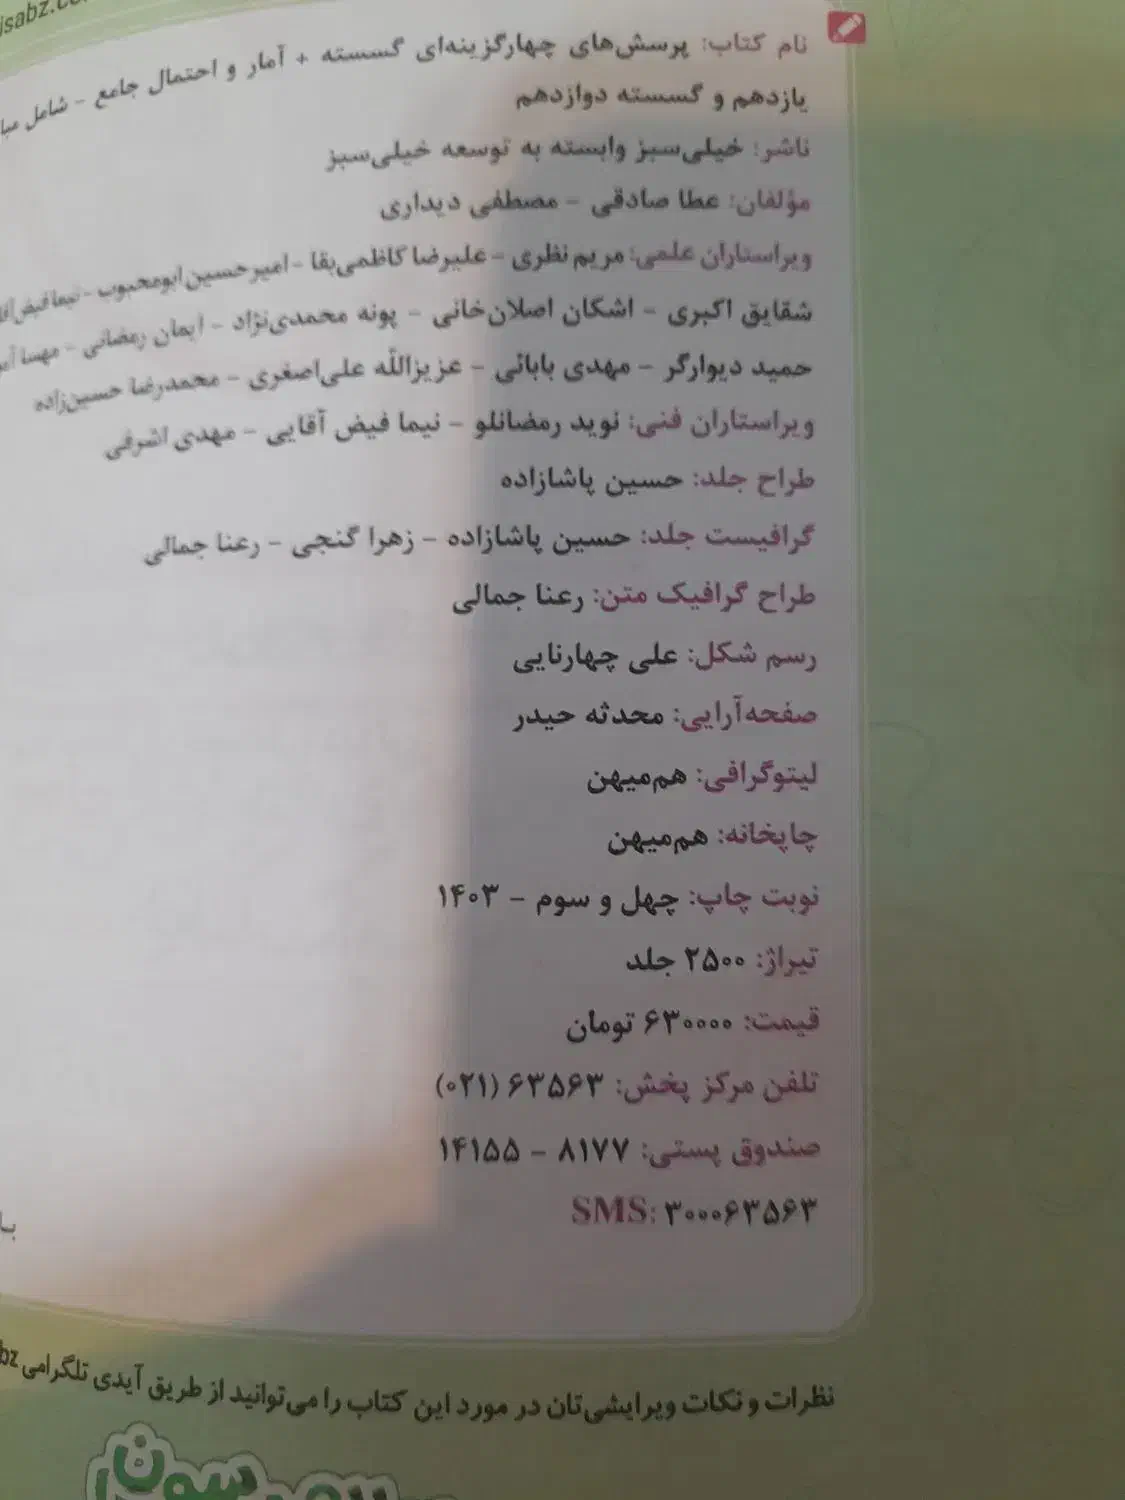 isabz.co
نام کتاب: پرسش‌های چهارگزینه‌ای گسسته + آمار و احتمال جامع - شامل
یازدهم و گسسته دوازدهم
ناشر: خیلی‌سبز وابسته به توسعه خیلی‌سبز
مؤلفان: عطا صادقی - مصطفی دیداری
ویراستاران علمی: مریم نظری - علیرضا کاظمی‌بقا - امیرحسین ابومحبوب - نیما فیض
شقایق اکبری - اشکان اصلان‌خانی - پونه محمدی‌نژاد - ایمان رمضانی - مهسا
حمید دیوارگر - مهدی بابائی - عزیزالله علی‌اصغری - محمدرضا حسین‌زاده
ویراستاران فنی: نوید رمضانلو - نیما فیض آقایی - مهدی اشرفی
طراح جلد: حسین پاشازاده
گرافیست جلد: حسین پاشازاده - زهرا گنجی - رعنا جمالی
طراح گرافیک متن: رعنا جمالی
رسم شکل: علی چهارنایی
صفحه‌آرایی: محدثه حیدر
لیتوگرافی: هم‌میهن
چاپخانه: هم‌میهن
نوبت چاپ: چهل و سوم - ۱۴۰۳
تیراژ: ۲۵۰۰ جلد
قیمت: ۶۳۰۰۰۰ تومان
تلفن مرکز پخش: ۶۳۵۶۳ (۰۲۱)
صندوق پستی: ۸۱۷۷ - ۱۴۱۵۵
SMS: ۳۰۰۰۶۳۵۶۳
نظرات و نکات ویرایشی‌تان در مورد این کتاب را می‌توانید از طریق آیدی تلگرامی